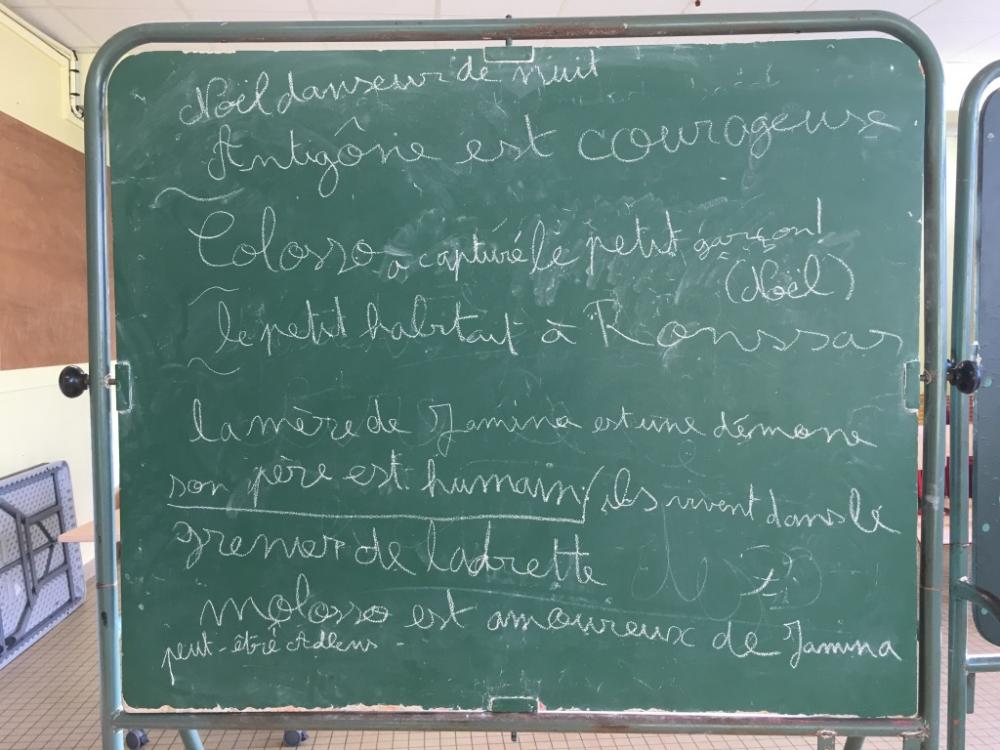 Noël danseur de nuit
Antigône est courageuse
Colosso a capturé le petit garçon!
(Noël)
le petit habitait à Ronssas
la mère de Jamina est une démone
son père est humain / ils vivent dans le
grenier de Ladrette
molosso est amoureux de Jamina
peut-être Adlens